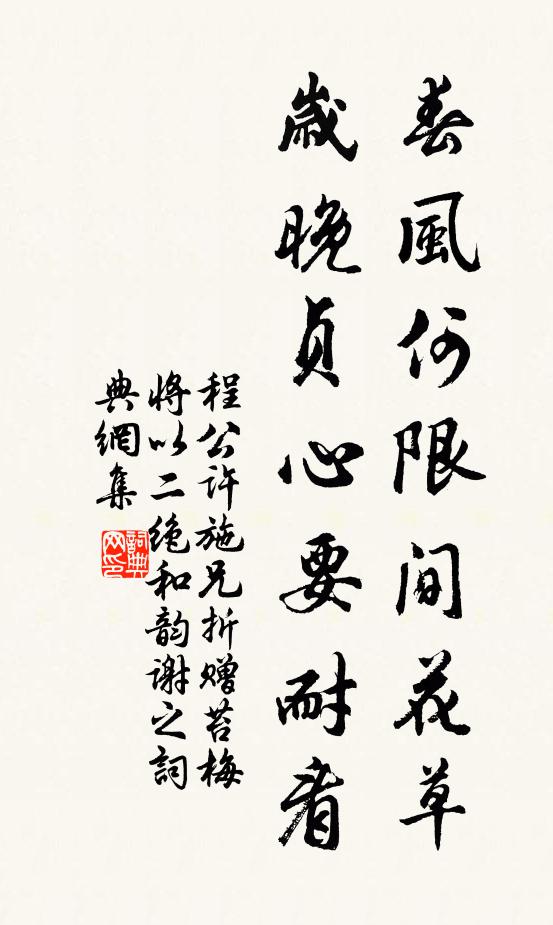 春風何限閒花草
歲晚貞心要耐看
程公許施兄折贈苔梅
將以二絕和韵謝之詞
典網集
詞典网印